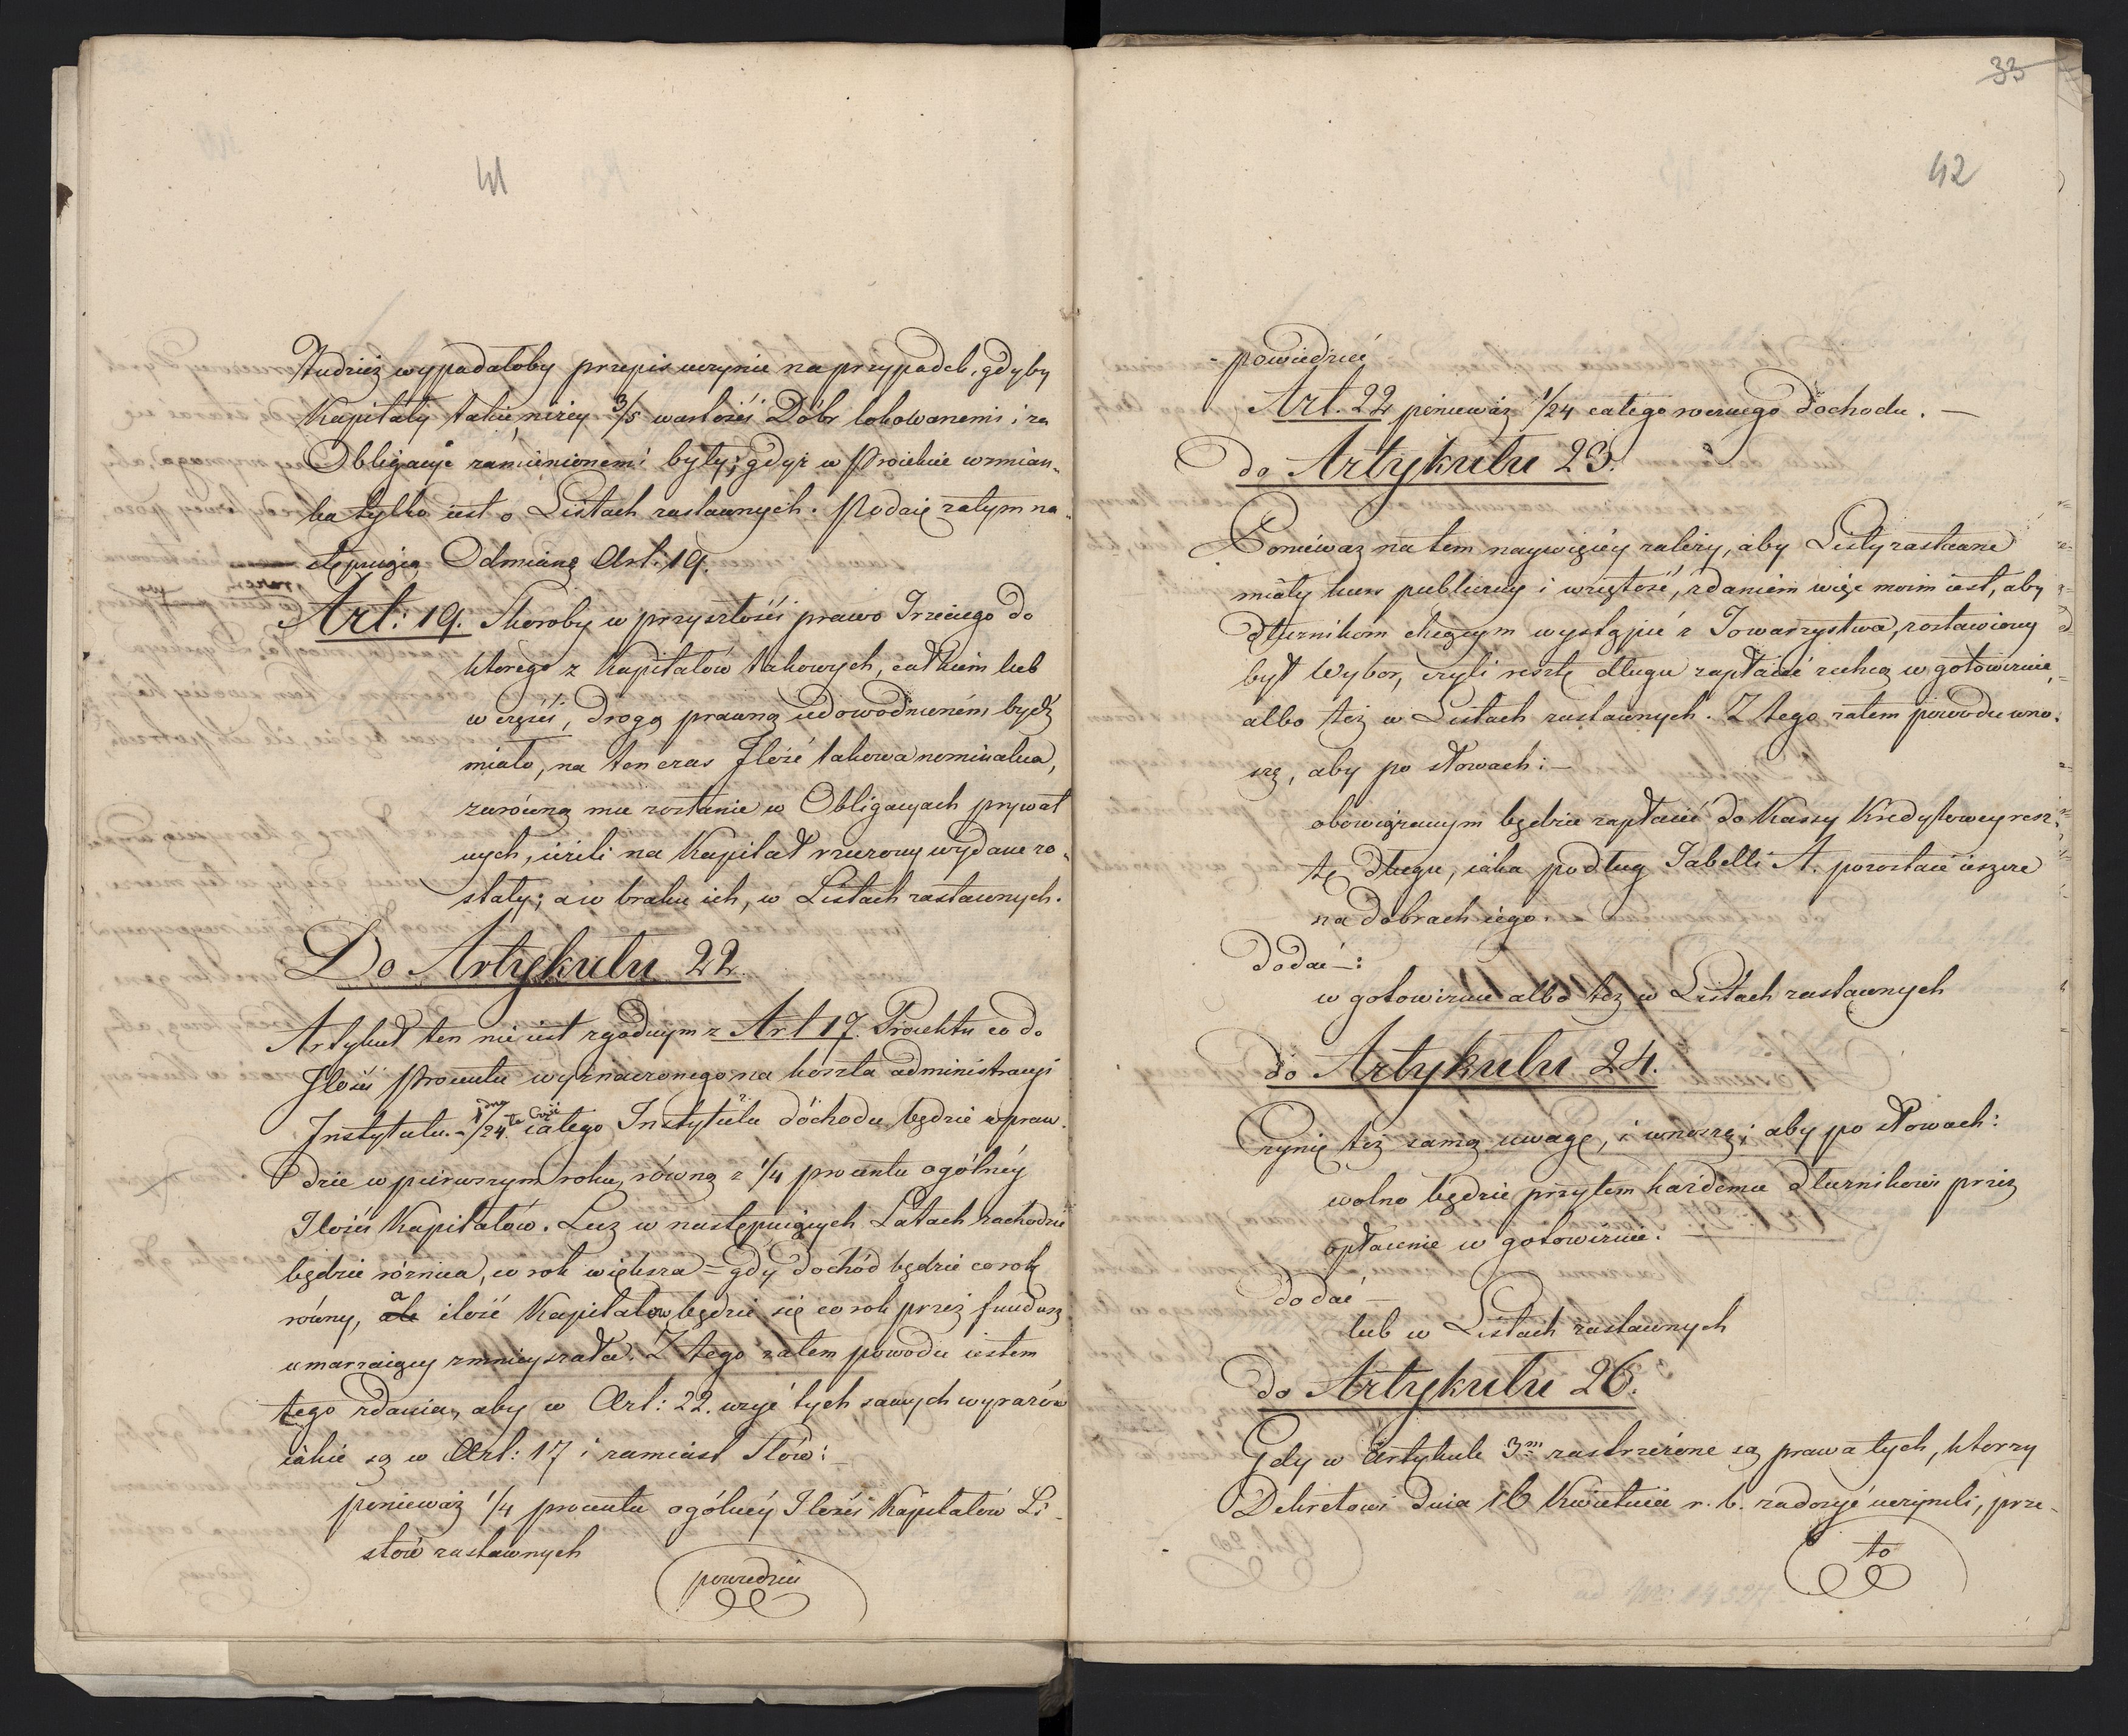 41
Tudzież wypadałoby przepis uczynić na przypadek, gdyby
Kapitały takie, niżey 3/5 wartości Dóbr lokowanemi i za
Obligacye zamienionemi były; gdyż w Proiekcie wzmian-
ka tylko iest o Listach zastawnych. Podaię zatym na-
stępuiącą Odmianę Art: 19.
Art: 19. Skoroby w przyszłości prawo Trzeciego do
ktorego z Kapitałów takowych, całkiem lub
w części, drogą prawną udowodnioném bydź
miało, na ten czas Ilość takowa nominalna,
zwróconą mu zostanie w Obligacyach prywat
nych, ieżeli na Kapitał rzeczony wydane zo-
stały; a w braku ich, w Listach zastawnych.
Do Artykułu 22.
Artykuł ten nie iest zgodnym z Art 17. Proiektu co do
Ilości Procentu wyznaczonego na koszta administracyi
Instytutu. 1/24ta Część całego Instytutu dochodu będzie wpraw-
dzie w pierwszym roku, równą z 1/4 procentu ogólnéy
Ilości Kapitałów. Lecz w następuiących Latach zachodzić
będzie różnica, co rok większa = gdy dochód będzie co rok
równy, a ilość Kapitałow będzie się co rok przez fundusz
umarzaiący zmnieyszała. Z tego zatem powodu iestem
tego zdania, aby w Art: 22. użyć tych samych wyrazów
iakie są w Art: 17 i zamiast Słów:
ponieważ 1/4 procentu ogólnéy Ilości Kapitałów Li-
stów zastawnych
powiedzieć
33
42
- powiedzieć
Art. 22 ponieważ 1/24 całego rocznego dochodu. —
do Artykułu 23.
Ponieważ na tem naywięcéy zależy, aby Listy zastawne
miały kurs publiczny i wziętość, zdaniem więc moim iest, aby
dłużnikom chcącym wystąpić z Towarzystwa, zostawiony
był Wybor, czyli resztę długu zapłacić zechcą w gotowiznie,
albo też w Listach zastawnych. Z tego zatem powodu wno-
szę, aby po słowach: —
obowiązanym będzie zapłacić do Kassy Kredytowey resz-
tę długu, iaka podług Tabelli A. pozostaie ieszcze
na dobrach iego.
dodać —:
w gotowiznie albo też w Listach zastawnych
do Artykułu 24.
Czynię też samą uwagę, i wnoszę; aby po słowach:
wolno będzie przytem każdemu dłużnikowi przez
opłacenie w gotowiznie.
dodać —
lub w Listach zastawnych
do Artykułu 26.
Gdy w Artykule 3m zastrzeżone są prawa tych, ktorzy
Dekretowi dnia 16 Kwietnia r. b. zadosyć uczynili, prze-
to